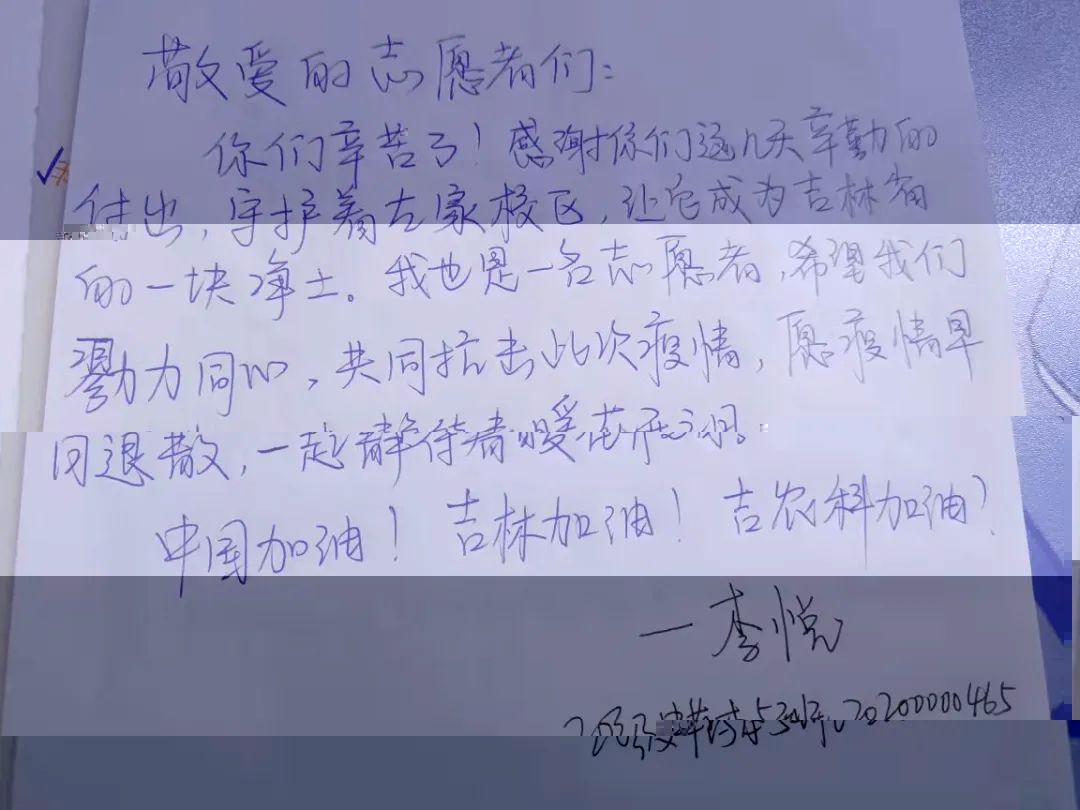 敬爱的志愿者们：
你们辛苦了！感谢你们这几天辛勤的
付出，守护着左家校区，让它成为吉林省
的一块净土。我也是一名志愿者，希望我们
勠力同心，共同抗击此次疫情，愿疫情早
日退散，一起静待春暖花开之日。
中国加油！吉林加油！吉农科加油！
一李悦
20200000465